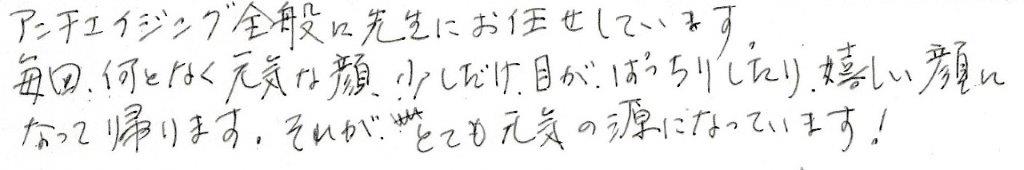 アンチエイジング全般に先生にお任せしています。
毎回、何となく元気な顔、少しだけ、目が、ぱっちりしたり、嬉しい顔に
なって帰ります。それが、とても元気の源になっています!